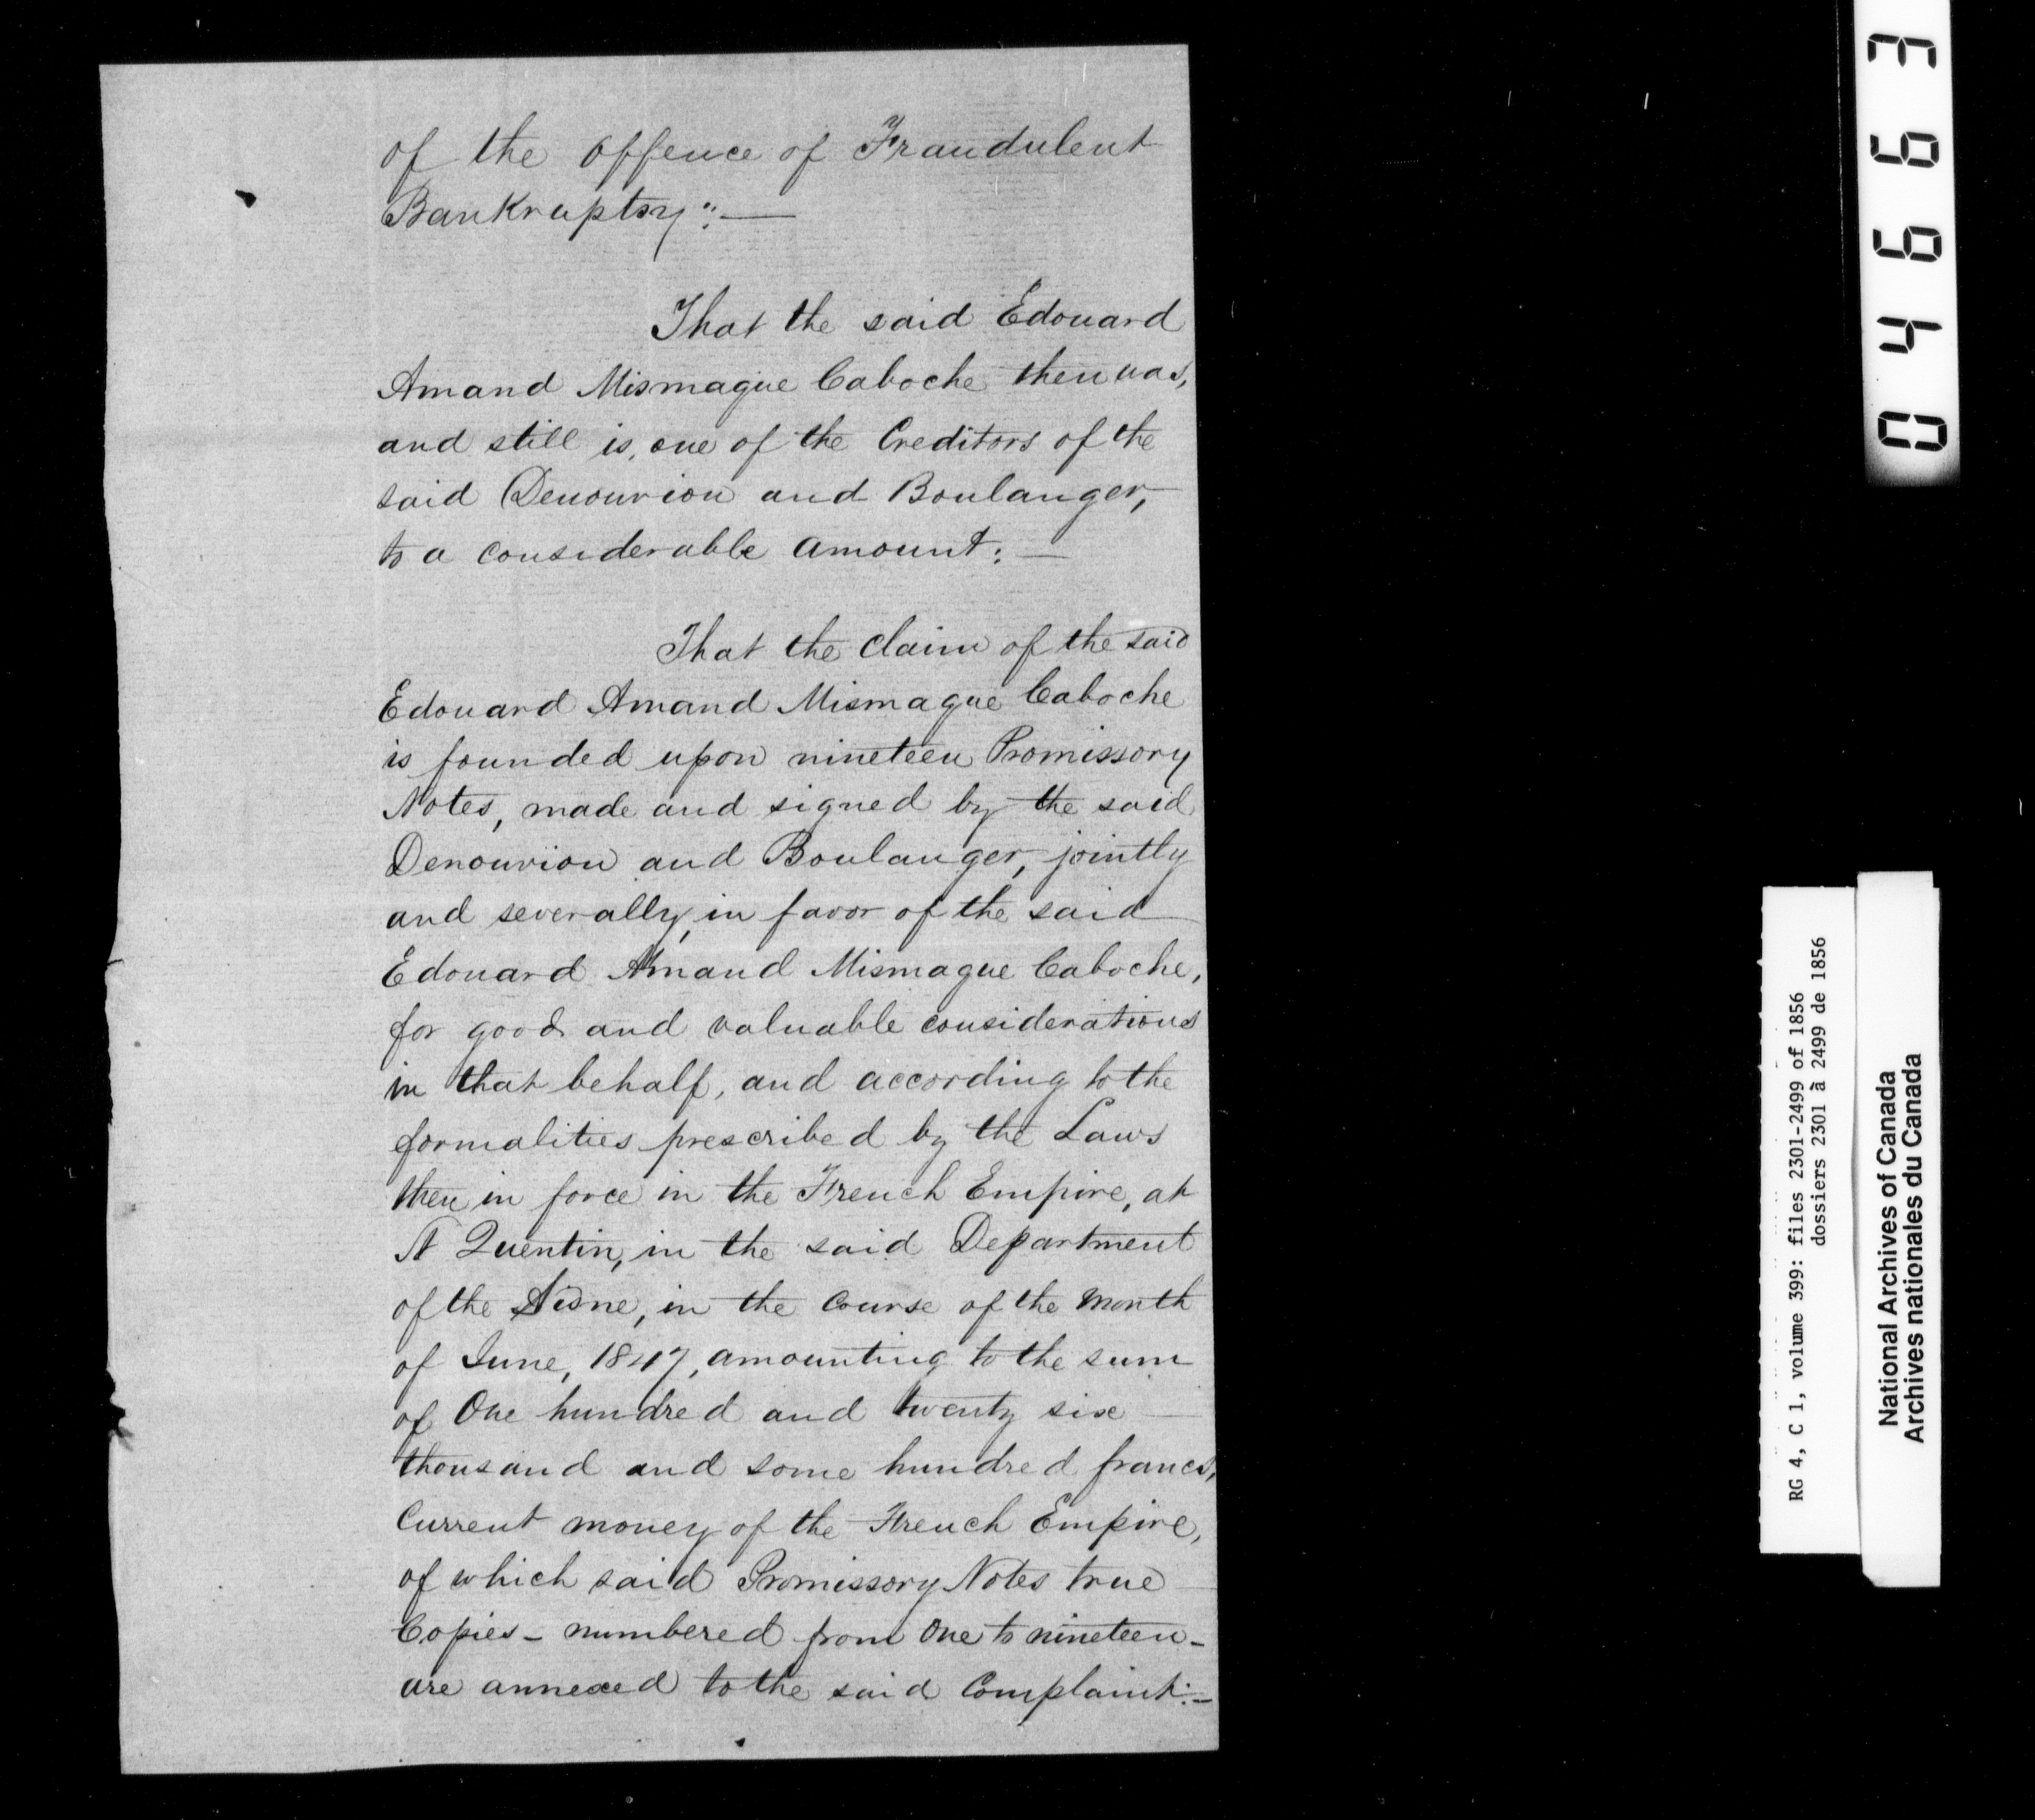 of the Offence of Fraudulent
Bankruptsy":—
That the said Edouard
Amand Mismaque Caboche then was,
and still is, one of the Creditors of the
said Denouvion and Boulanger,
to a considerable amount:—
That the claim of the said
Edouard Amand Mismaque Caboche
is founded upon nineteen Promissory
Notes, made and signed by the said
Denouvion and Boulanger, jointly
and severally, in favor of the said
Edouard Amand Mismaque Caboche,
for good and valuable considerations
in that behalf, and according to the
formalities prescribed by the Laws
then in force in the French Empire, at
St Quentin, in the said Department
of the Aisne, in the course of the month
of June, 1847, amounting to the sum
of One hundred and twenty six —
thousand and some hundred francs,
Current money of the French Empire,
of which said Promissory Notes true
Copies - numbered from One to nineteen -
are annexed to the said Complaint:-
04663
RG 4, C 1, volume 399: files 2301-2499 of 1856
dossiers 2301 à 2499 de 1856
National Archives of Canada
Archives nationales du Canada